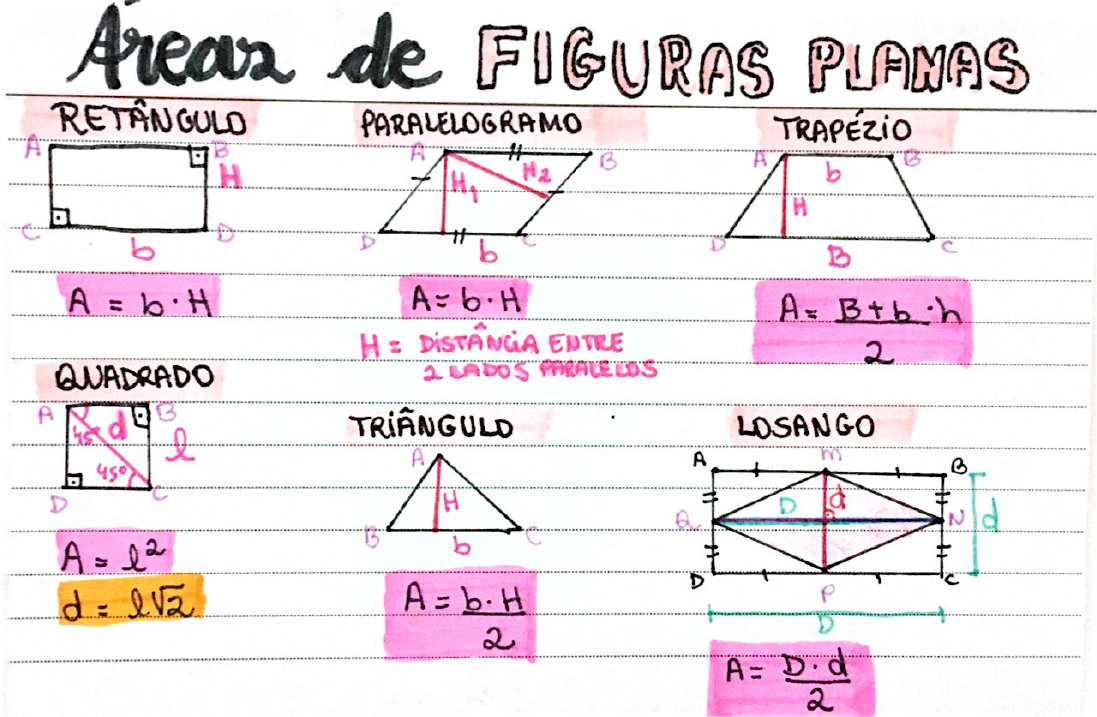 Áreas de FIGURAS PLANAS
RETÂNGULO
A
B
H
C
D
b
A = b · H
PARALELOGRAMO
A
B
H1
H2
D
C
b
A = b · H
H = DISTÂNCIA ENTRE
2 LADOS PARALELOS
TRAPÉZIO
A
B
b
H
D
C
B
A = B + b · h
2
QUADRADO
A
B
45°
d
l
45°
D
C
A = l²
d = l√2
TRIÂNGULO
A
H
B
C
b
A = b · H
2
LOSANGO
A
m
B
D
d
d
Q
N
D
P
C
D
A = D · d
2